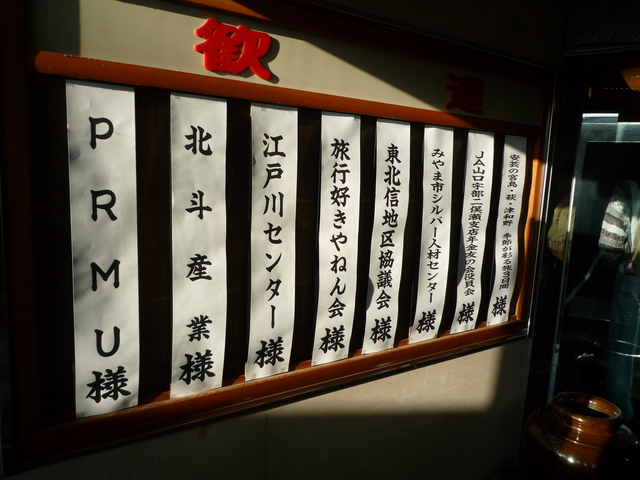 歓迎
安芸の宮島・萩・津和野 季節が彩る旅3日間 様
JA山口宇部二俣瀬支店年金友の会役員会 様
みやま市シルバー人材センター 様
東北信地区協議会 様
旅行好きやねん会 様
江戸川センター 様
北斗産業様
PRMU様